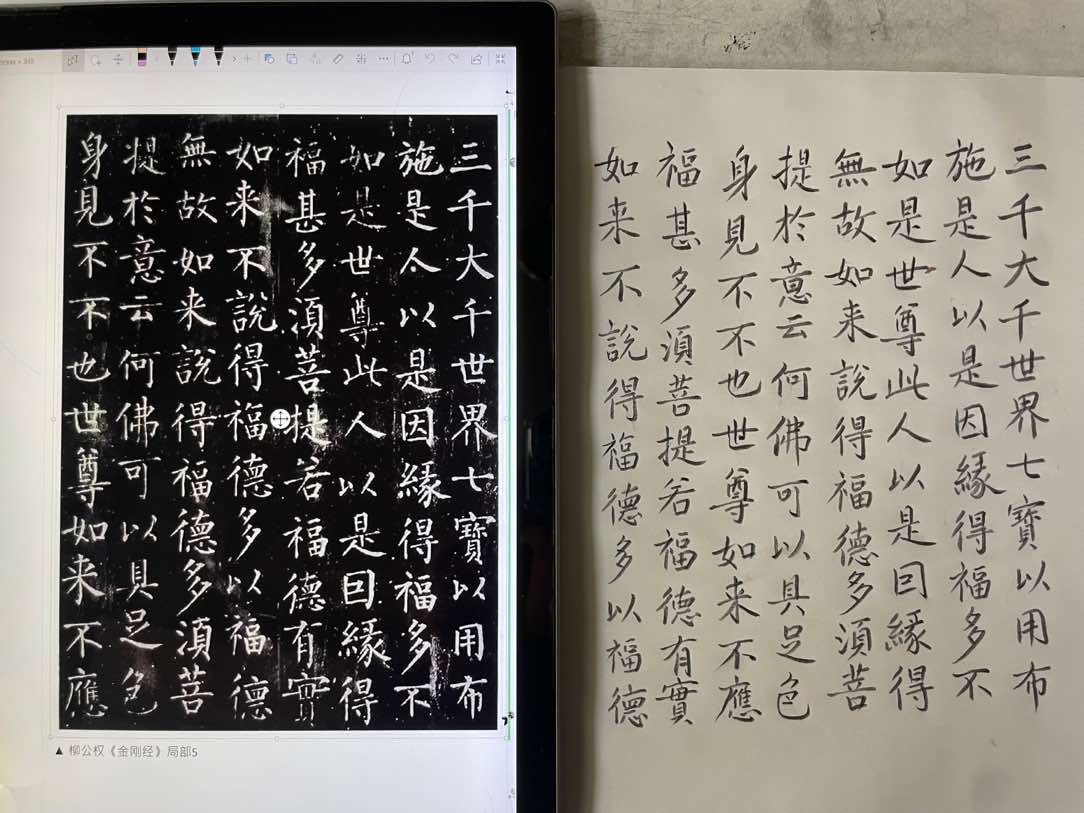 三千大千世界七寶以用布
施是人以是因緣得福多不
如是世尊此人以是因緣得
福甚多湏菩提若福德有實
如来不說得福德多以福德
無故如来說得福德多湏菩
提於意云何佛可以具足色
身見不不也世尊如来不應
▲ 柳公权《金刚经》局部5
三千大千世界七寶以用布
施是人以是因緣得福多不
如是世尊此人以是因緣得
無故如来說得福德多湏菩
提於意云何佛可以具足色
身見不不也世尊如来不應
福甚多湏菩提若福德有實
如来不說得福德多以福德